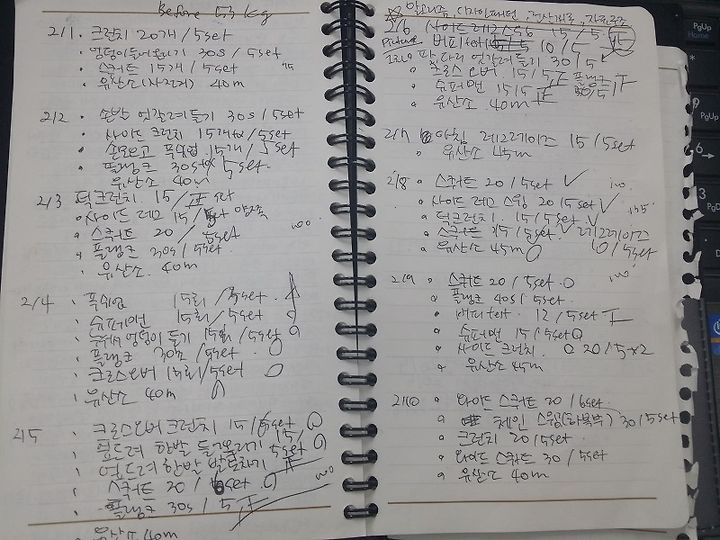 Before 53 kg
2/1. 크런치 20개 / 5set
· 엉덩이들어올리기 30s / 5set
· 스쿼트 15개 / 5set
· 유산소(사전거) 40m
2/2 · 한발 엉갈려들기 30s / 5set
· 사이드 크런치 15개x2 / 5set
· 푸쉬업 15개 / 5set
· 플랭크 30s 5set.
유산소 40m
2/3 턱크런치 15 / set
· 사이드 레그 15 / 5set
· 스쿼트 20 / 5set
· 플랭크 30s / 5set.
· 유산소. 40m
2/4 · 푸쉬업 15회 / 5set.
· 슈퍼맨 15회 / 5set
엉덩이 들기 15회 / 5set
· 플랭크 30초 / 5set.
· 크로스오버 15회/5set
· 유산소 40m
2/5 · 크로스오버크런치 15 / 5set
· 엎드려 한발 들어올리기 15 / 5set
· 엎드려 한발
· 스쿼트 20 / 5set
· 플랭크 30s / 5
유산소 40m
2/6 사이드레그 15 / 5
버피test 10 / 5
다리 엉갈려들기 30 / 5
· 크로스오버 15 / 5 플랭크
· 슈퍼맨 15 / 5 30 / 5
· 유산소 40m
2/7 아침 레그레이즈 15 / 5set
유산소 45m
2/8 · 스쿼트 20 / 5set
· 사이드 레그 스윙 20 5set
· 턱크런치. 15 / 5set
· 스쿼트 15 / 5set. 레그레이즈
· 유산소 45m / 5set
2/9 · 스쿼트 20 / 5set
· 플랭크 40s / 5set.
· 버피test. 12 / 5set
· 슈퍼맨 15 / 5set
· 사이드 크런치. 20 / 5x2
· 유산소 45m
2/10 · 와이드 스쿼트 30 / 6set
체인 스윙(하복부) 30 / 5set
· 크런치 20 / 5set.
· 와이드 스쿼트 30 / 5set
· 유산소 40m